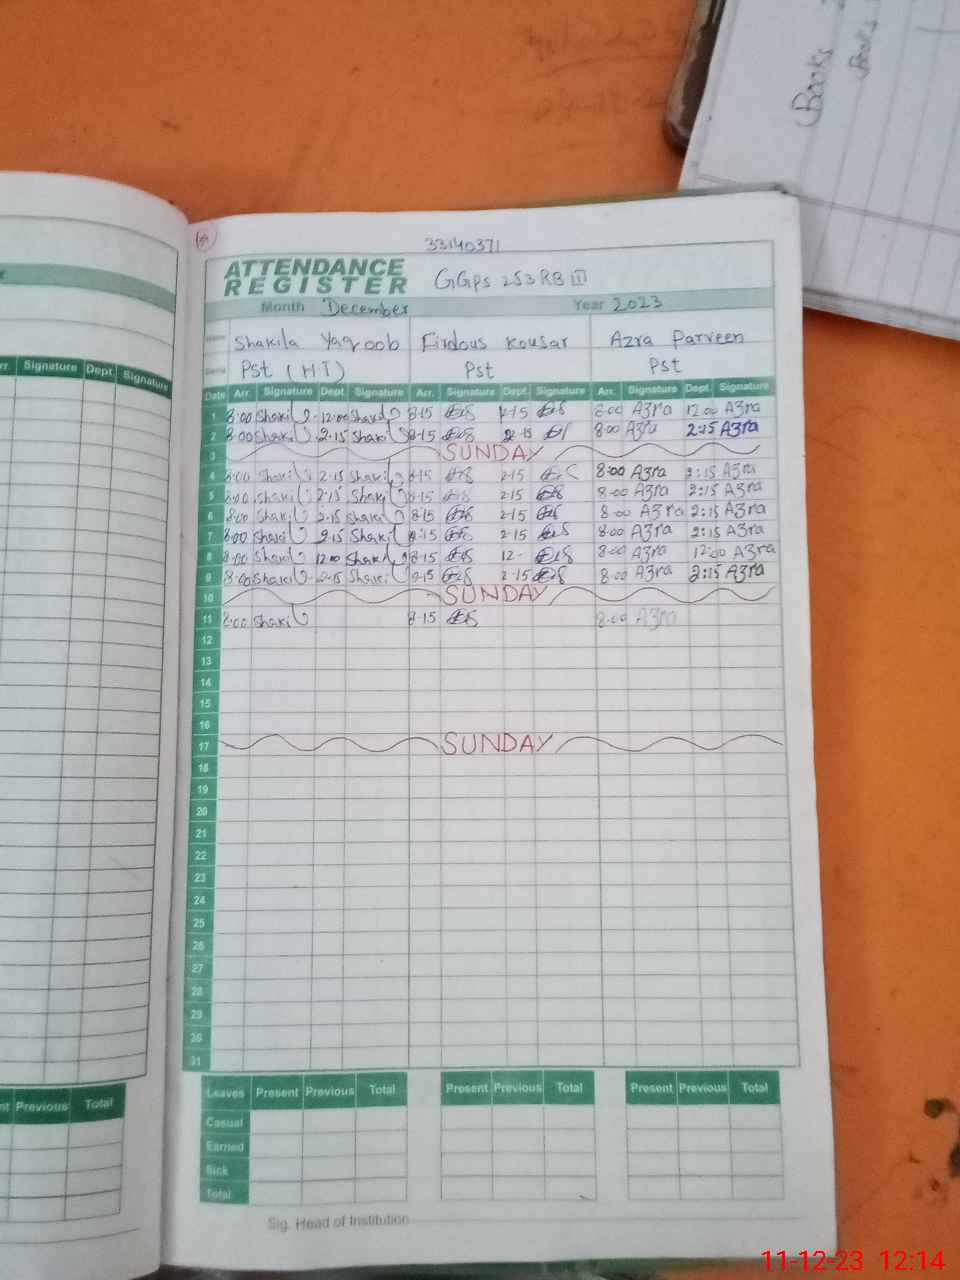 Books
Books
33140371
ATTENDANCE REGISTER GGPS 253RB II
Month December Year 2023
Shakila Yaqoob Firdous Kousar Azra Parveen
Pst (H.T) Pst Pst
Date Arr. Signature Dept. Signature Arr. Signature Dept. Signature Arr. Signature Dept. Signature
1 8:00 Shakil 12:00 Shakil 8-15 2-15 8:00 A3ra 12:00 A3ra
2 8:00 Shakil 2.15 Shakil 8-15 2-15 8:00 A3ra 2:15 A3ra
3 SUNDAY
4 8:00 Shakil 2-15 Shakil 8-15 2-15 8:00 A3ra 2:15 A3ra
5 8:00 Shakil 2:15 Shakil 8-15 2-15 8:00 A3ra 2:15 A3ra
6 8:00 Shakil 2-15 Shakil 8-15 2-15 8:00 A3ra 2:15 A3ra
7 8:00 Shakil 2.15 Shakil 8:15 2-15 8:00 A3ra 2:15 A3ra
8 8:00 Shakil 12:00 Shakil 8-15 12- 8:00 A3ra 12:00 A3ra
9 8:00 Shakil 2-15 Shakil 8-15 2-15 8:00 A3ra 2:15 A3ra
10 SUNDAY
11 8:00 Shakil 8-15 8:00 A3ra
12
13
14
15
16
17 SUNDAY
18
19
20
21
22
23
24
25
26
27
28
29
30
31
Leaves Present Previous Total Present Previous Total Present Previous Total
Casual
Earned
Sick
Total
Sig. Head of Institution
Signature Dept. Signature
Previous Total
11-12-23 12:14